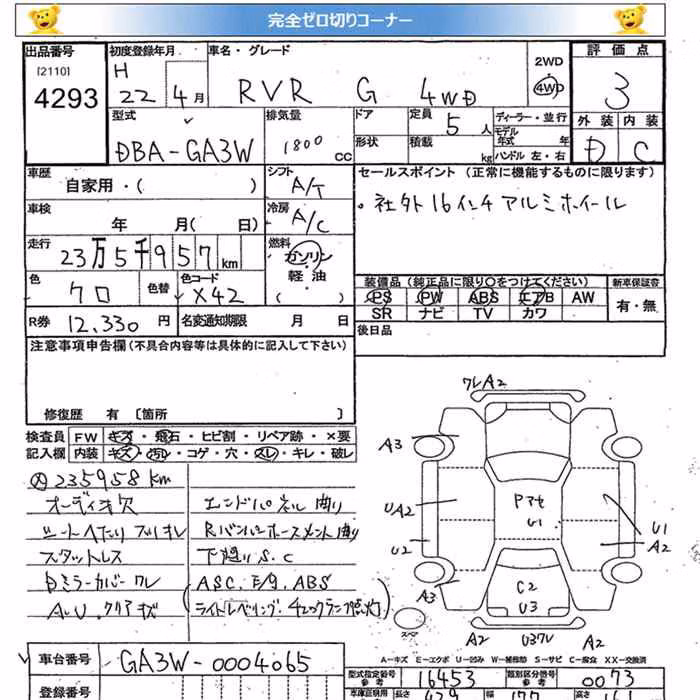 完全ゼロ切りコーナー
出品番号 初度登録年月 車名・グレード 2WD 評価点
[2110] H 22年 4月 RVR G 4WD 4WD 3
4293
型式 排気量 ドア 定員 ディーラー・並行 外装 内装
DBA-GA3W 1800cc 5人 モデル年式 年 D C
形状 積載 kg ハンドル 左・右
車歴 シフト セールスポイント (正常に機能するものに限ります)
自家用・( ) A/T 。社外16インチアルミホイール
車検 冷房
年 月( 日) A/C
走行 燃料
23万5千957km ガソリン
軽油
( )
色 色替 色コード 装備品 (純正品に限り○をつけてください) 新車保証書
クロ X42 PS PW ABS エアB AW 有・無
SR ナビ TV カワ
R券 12,330円 名変通知期限 月 日 後日品
注意事項申告欄(不具合内容等は具体的に記入して下さい)
修復歴 有 [箇所 ]
検査員 FW キズ・飛石・ヒビ割・リペア跡・×要
記入欄 内装 キズ・汚レ・コゲ・穴・スレ・キレ・破レ
メ 235958km
オーディオ欠 エンドパネル曲り
シートヘタリ Rバンパーホースメント曲り
スタットレス 下廻りS.C
ミラーカバーワレ (ASC, E/g, ABS
A.U.クリアキズ ライトレベリング.4つのランプ点灯)
ワレA2
A3
UA2
U2
A3
Pアセ
U1
U1
A2
C2
U3
スペア
A2 U37U A2
A-キズ E-エクボ U-凹ミ W-補修跡 S-サビ C-腐食 XX-交換済
車台番号 GA3W-0004065 型式指定番号 参考 16453 類別区分番号 参考 0073
登録番号 長さ 幅 高さ